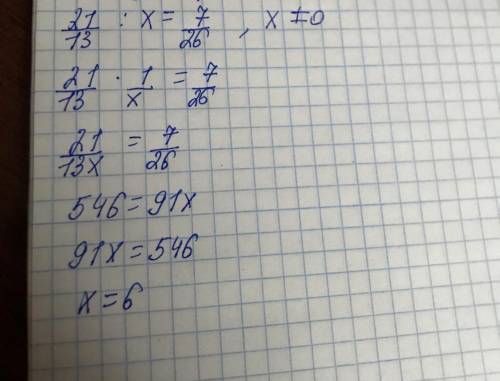 21/13 : x = 7/26, x ≠ 0
21/13 · 1/x = 7/26
21/13x = 7/26
546 = 91x
91x = 546
x = 6